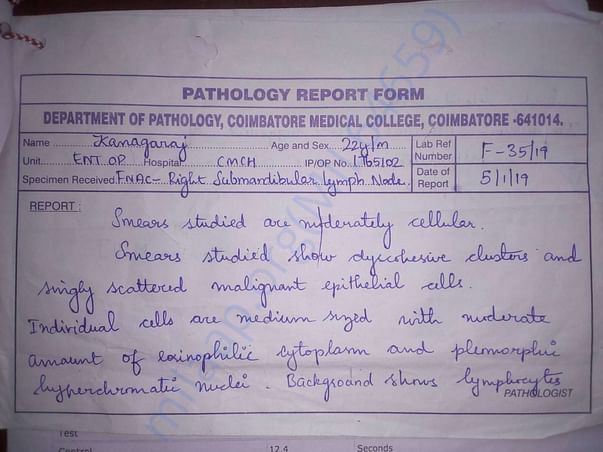 PATHOLOGY REPORT FORM
DEPARTMENT OF PATHOLOGY, COIMBATORE MEDICAL COLLEGE, COIMBATORE -641014.
Name Kanagaraj Age and Sex 22y/m Lab Ref Number F-35/19
Unit ENT OP Hospital CMCH IP/OP No. 1765102
Specimen Received FNAC- Right Submandibular lymph Node. Date of Report 5/1/19
REPORT :
Smears studied are moderately cellular.
Smears studied show dyscohesive clusters and
singly scattered malignant epithelial cells.
Individual cells are medium sized with moderate
amount of eosinophilic cytoplasm and plemorphic
hyperchromatic nuclei. Background shows lymphocytes
PATHOLOGIST
Test
Control 12.4 Seconds